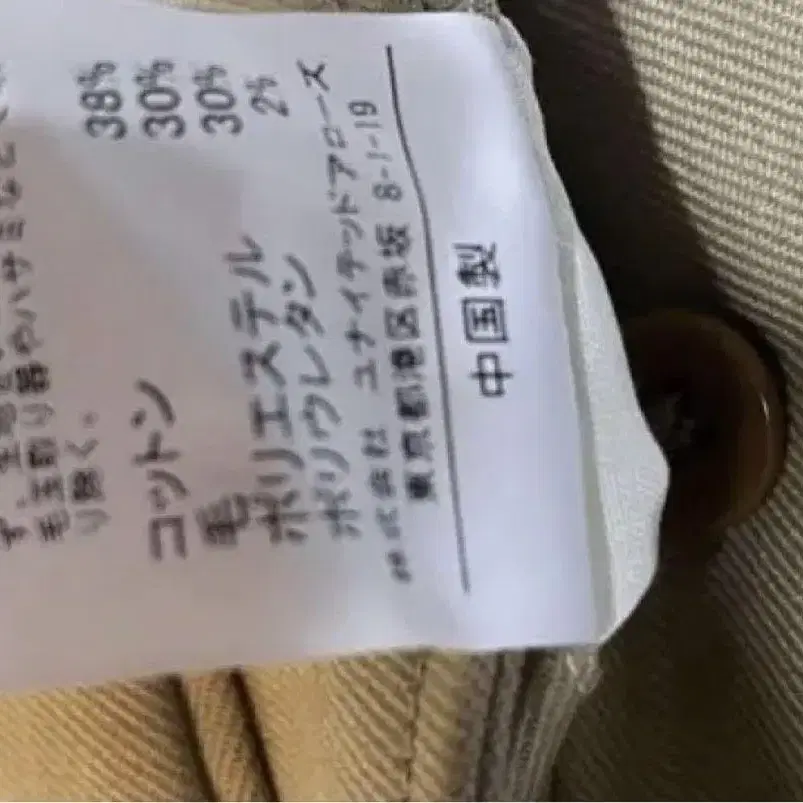 毛玉取り器やハサミなど
り除く。
コットン 38%
毛 30%
ポリエステル 30%
ポリウレタン 2%
株式会社 ユナイテッドアローズ
東京都港区赤坂 8-1-19
中国製